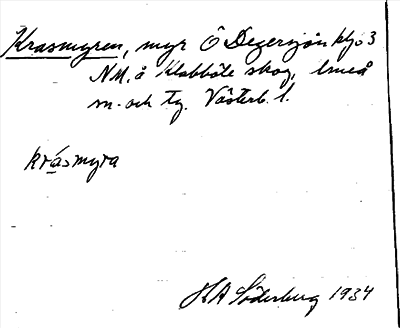 Krasmyren, myr Ö Degersjön kbl 3
NM. å Klabböle skog, Umeå
sn. och tg. Västerb. l.
kråsmyra
HA Söderberg 1934